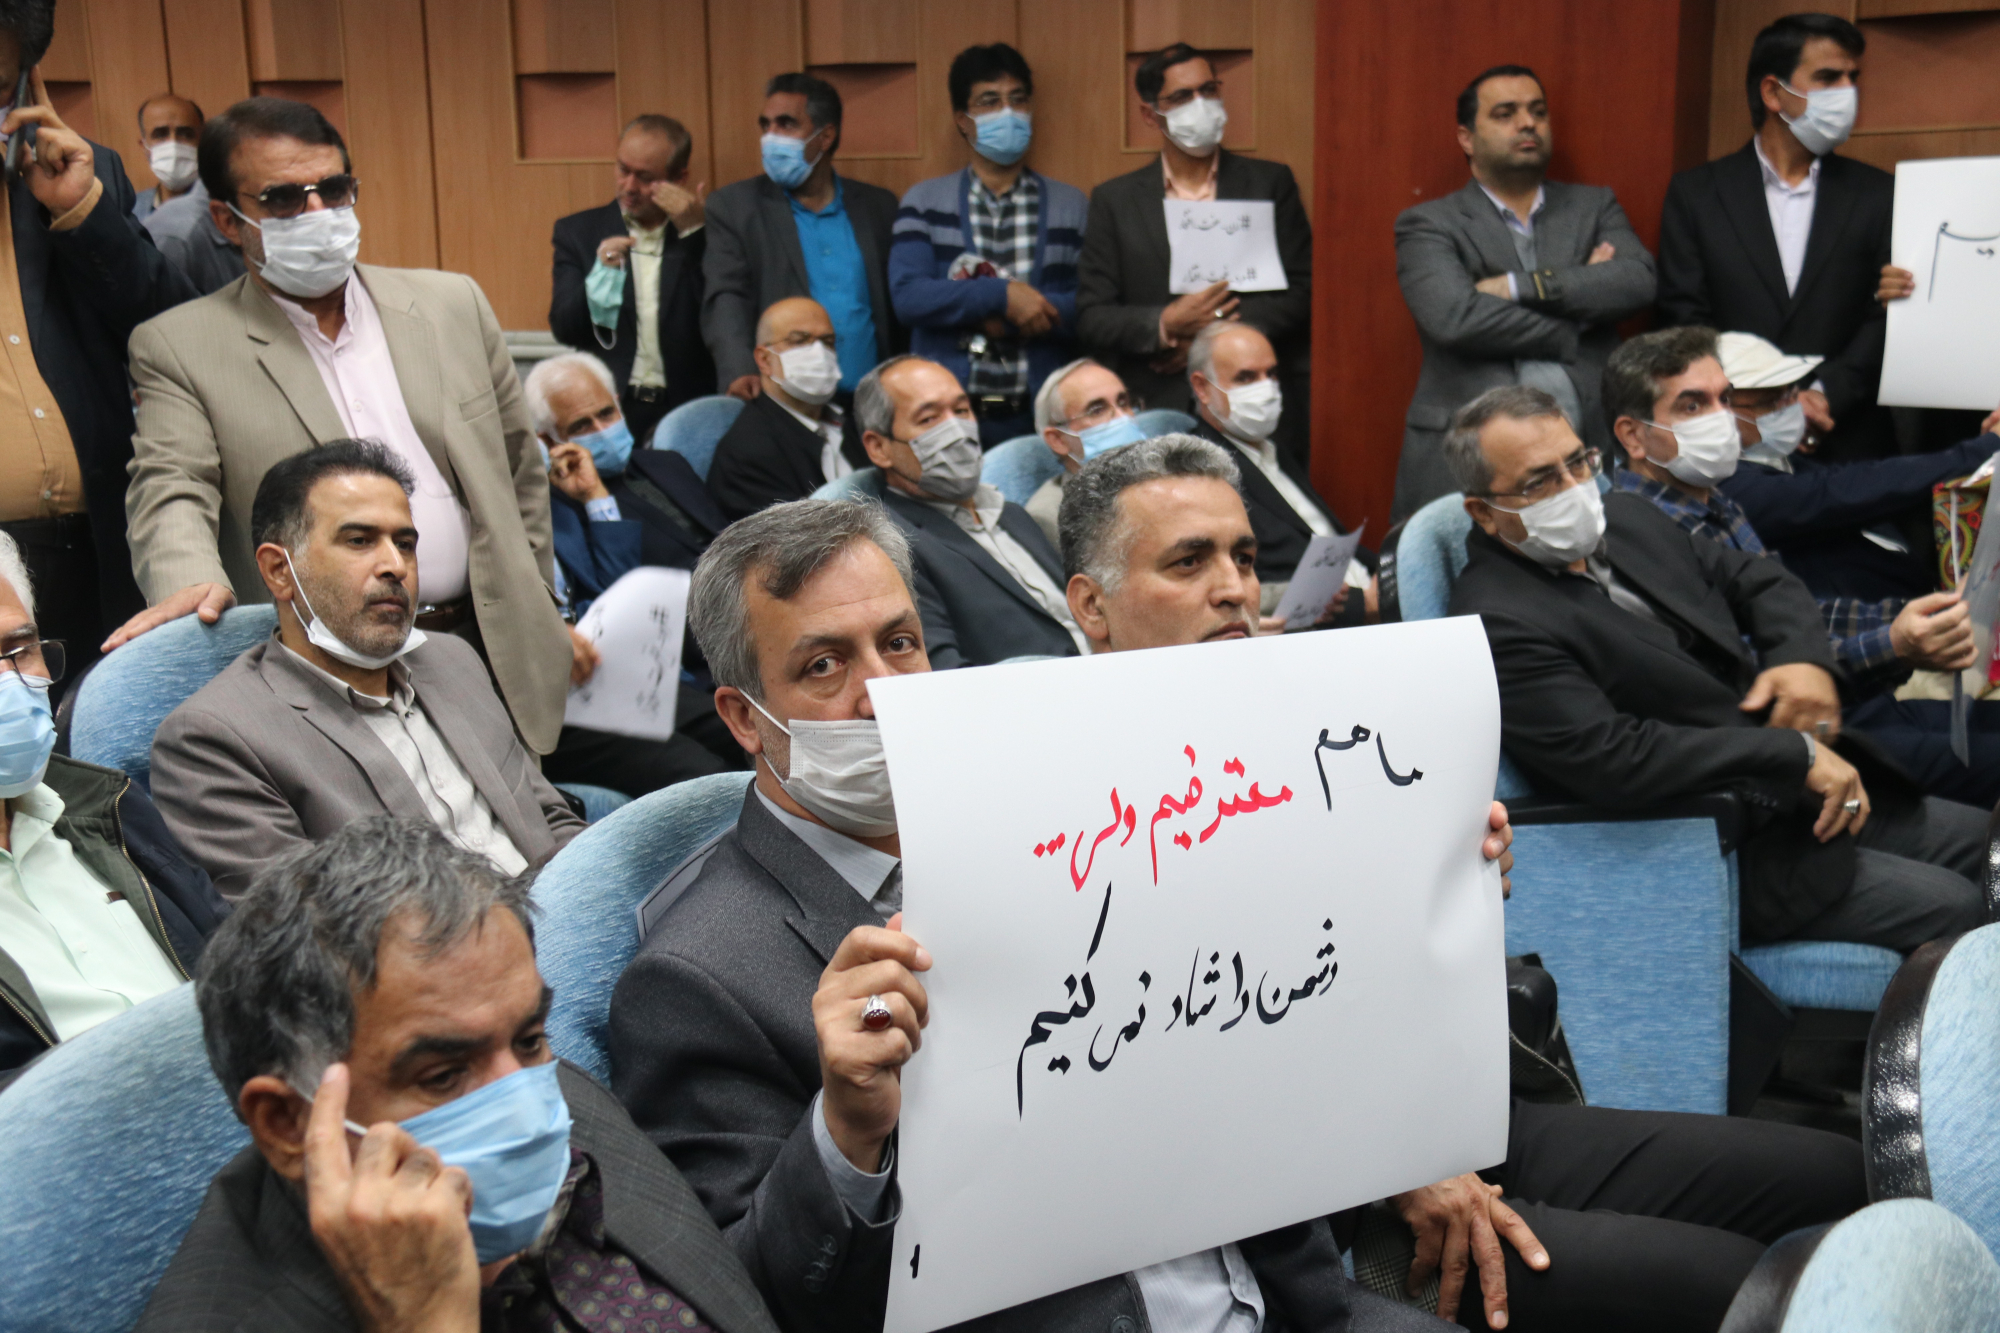 ما هم معترضیم ولی...
دشمن را شاد نمی‌کنیم
#زن_عفت_افتخار
#زن_عفت_افتخار